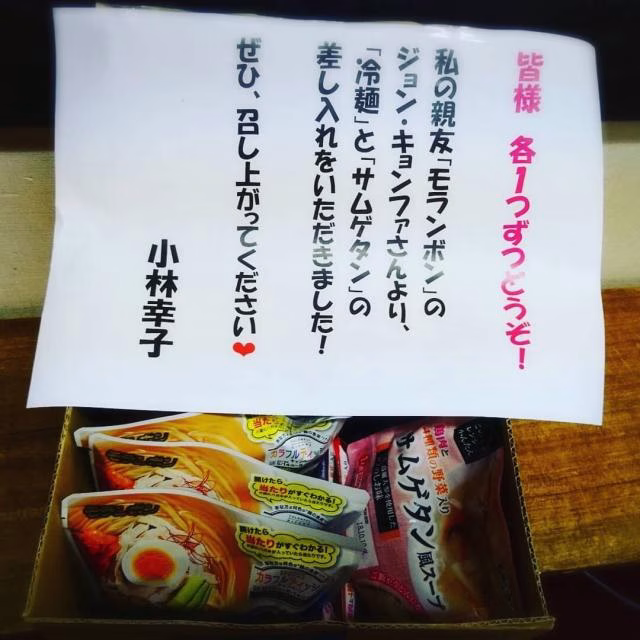 皆様 各1つずつどうぞ!
私の親友「モランボン」の
ジョン・キョンファさんより、
「冷麺」と「サムゲタン」の
差し入れをいただきました!
ぜひ、召し上がってください❤
小林幸子
当たり
カラフル
開けたら
当たりがすぐわかる!
開けたら
当たりがすぐわかる!
カラフル
種類の野菜入り
サムゲタン
風スープ